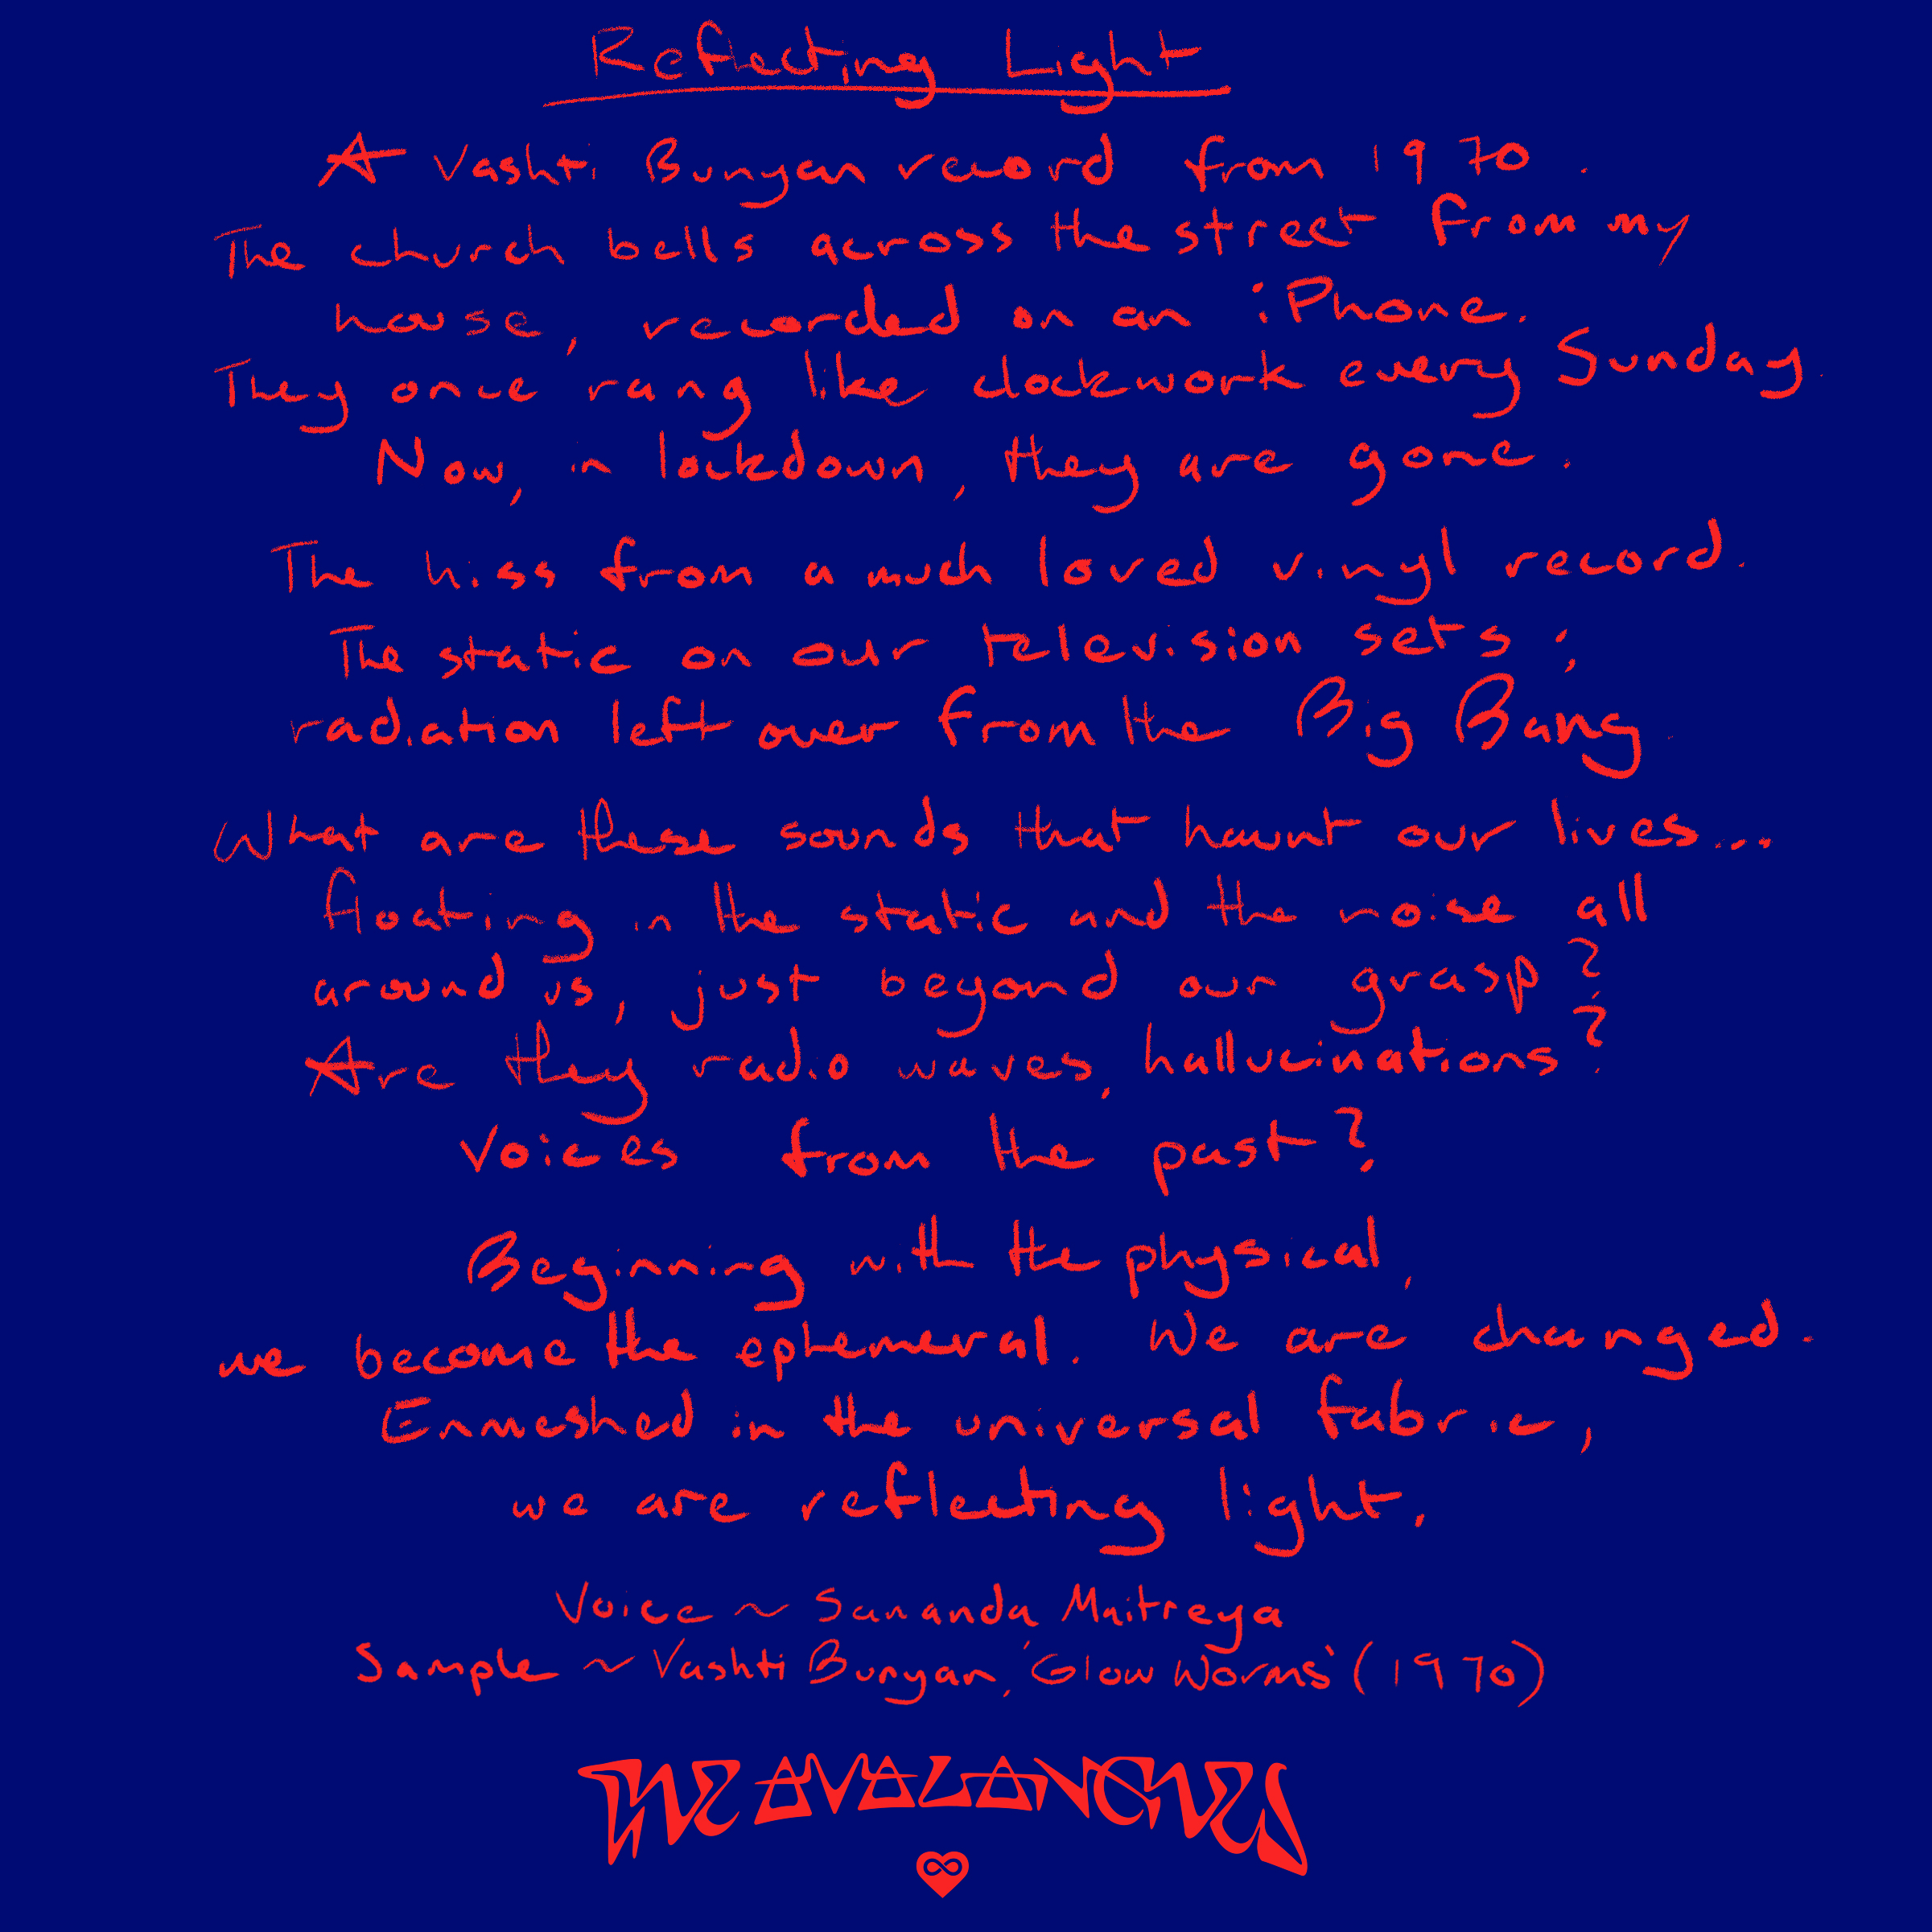 Reflecting Light
A Vashti Bunyan record from 1970.
The church bells across the street from my
house, recorded on an iPhone.
They once rang like clockwork every Sunday.
Now, in lockdown, they are gone.
The hiss from a much loved vinyl record.
The static on our television sets;
radiation left over from the Big Bang.
What are these sounds that haunt our lives...
floating in the static and the noise all
around us, just beyond our grasp?
Are they radio waves, hallucinations?
Voices from the past?
Beginning with the physical,
we become the ephemeral. We are changed.
Enmeshed in the universal fabric,
we are reflecting light.
Voice ~ Sananda Maitreya
Sample ~ Vashti Bunyan, 'Glow Worms' (1970)
THE AVALANCHES